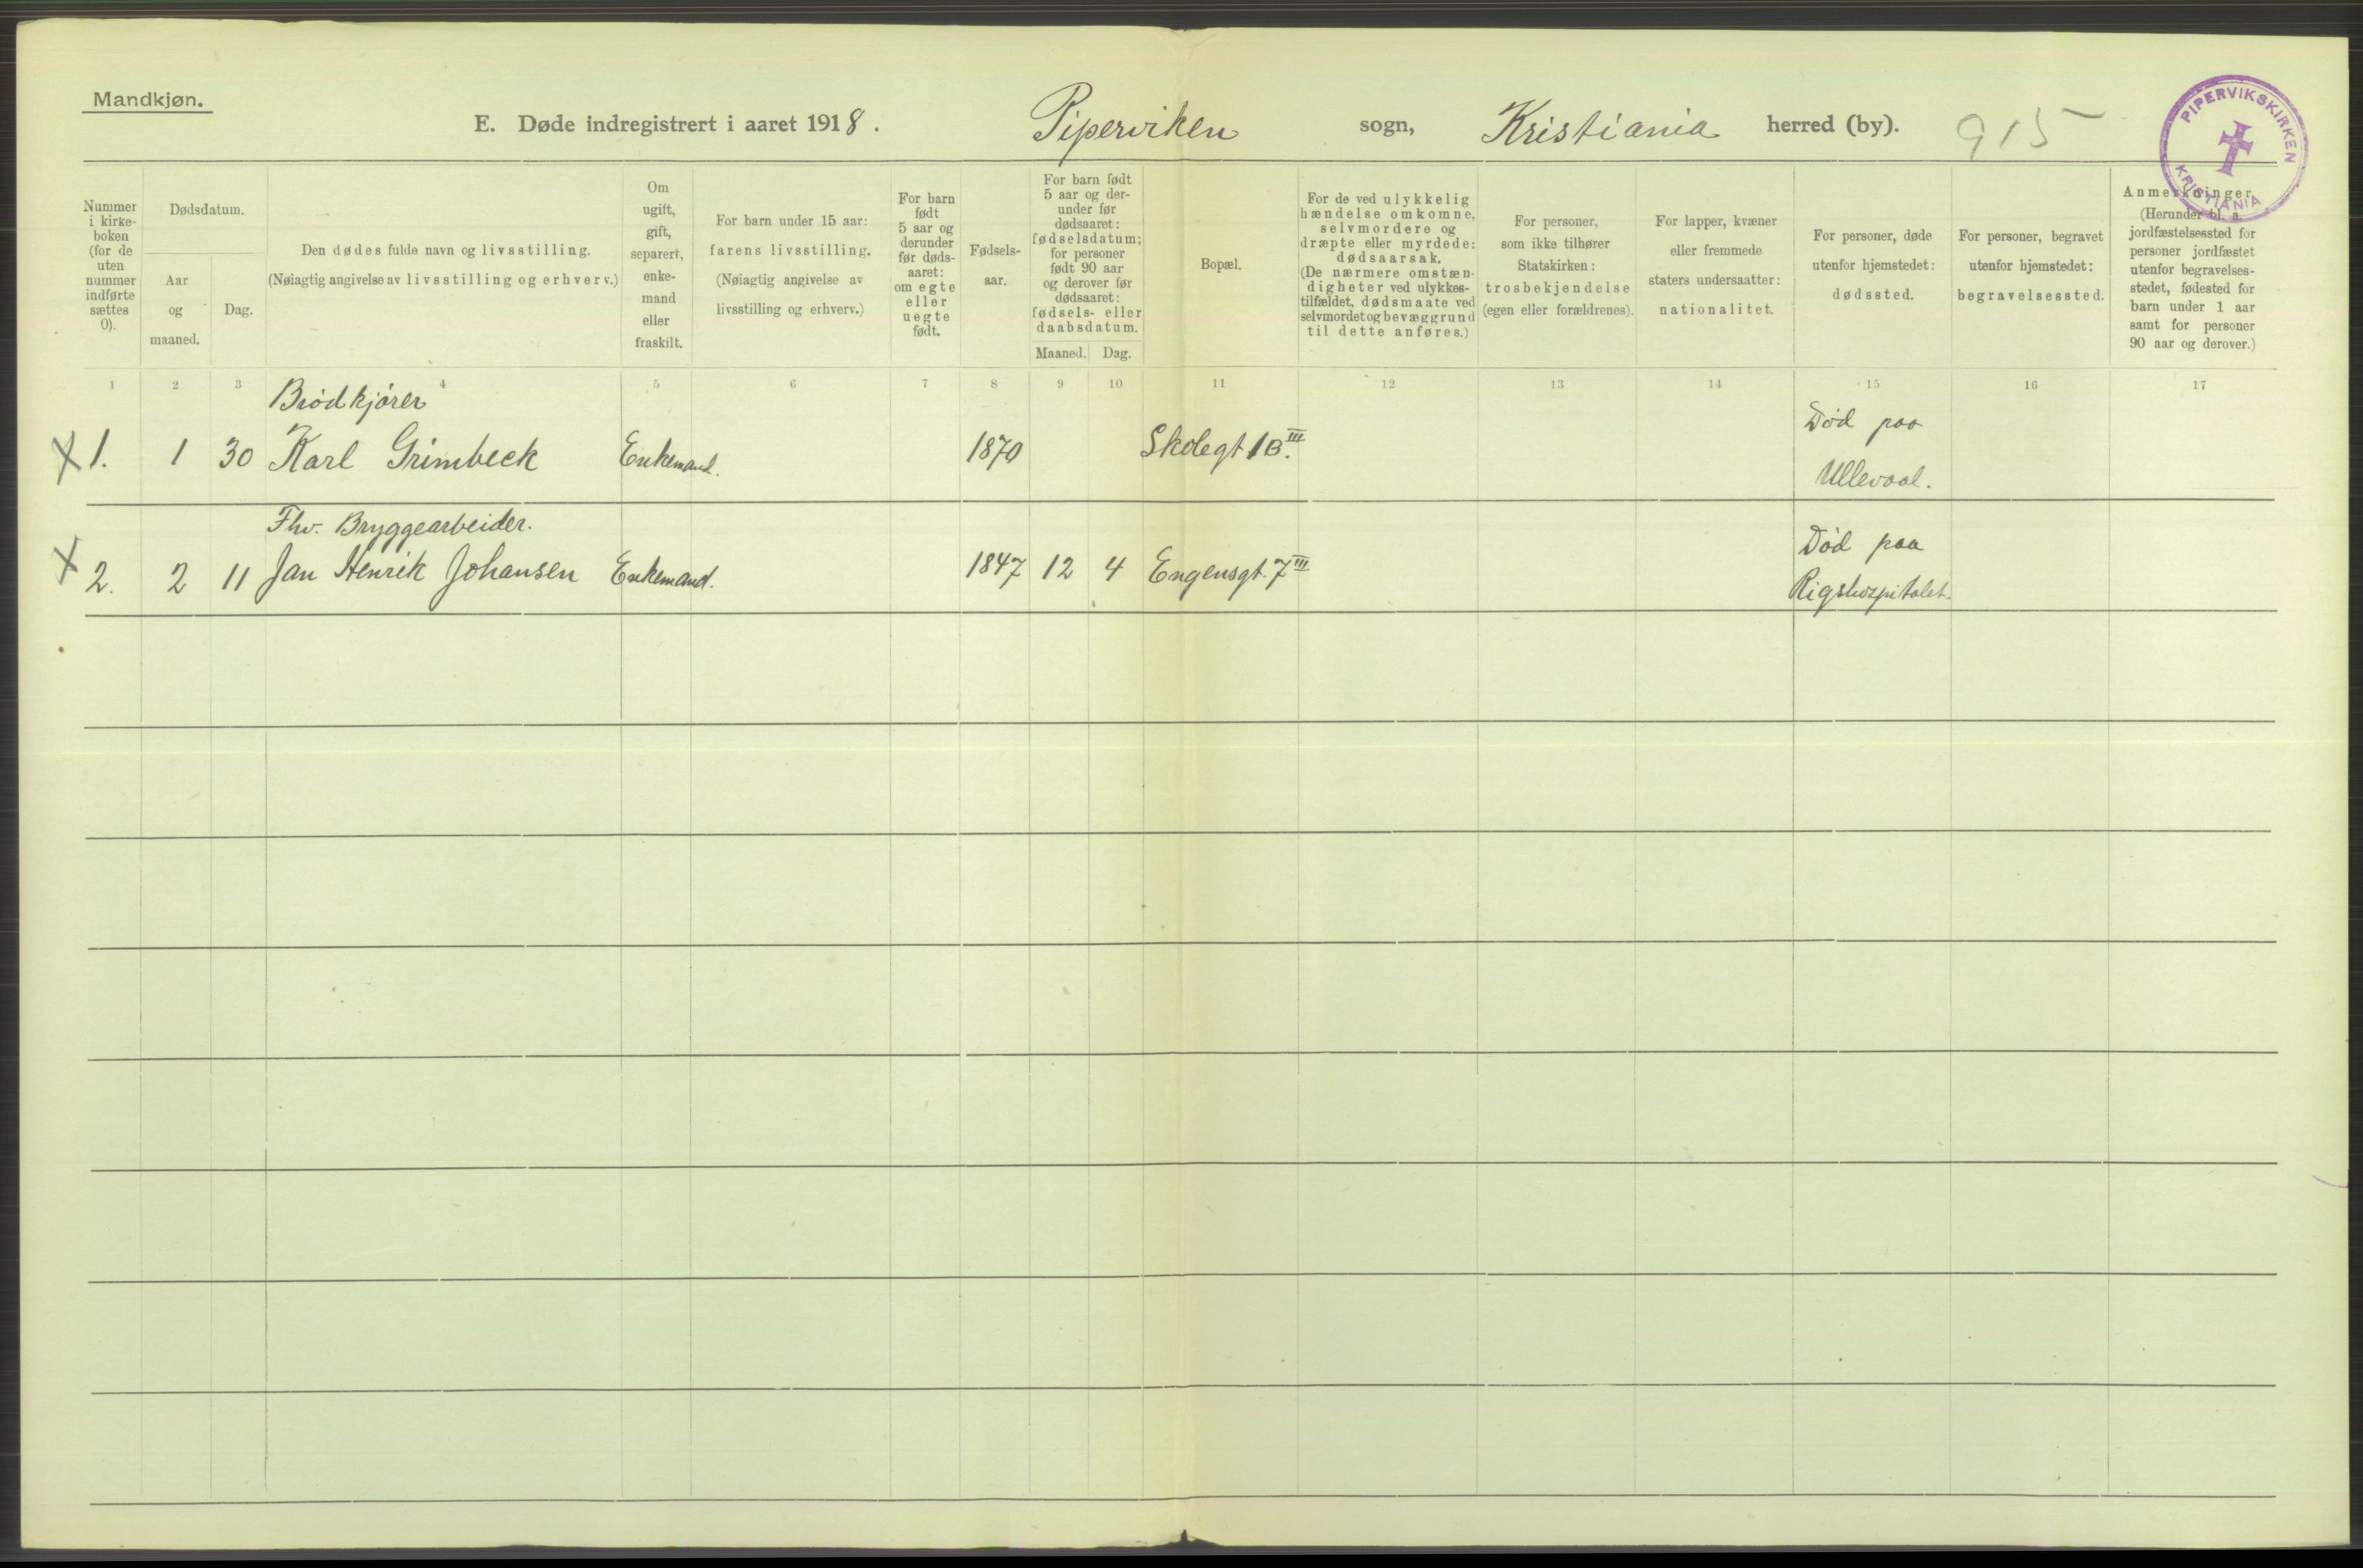 Mandkjøn.
E. Døde indregistrert i aaret 1918. Piperviken sogn, Kristiania herred (by). 915
PIPERVIKSKIRKEN
KRISTIANIA
Nummer
i kirke-
boken
(for de
uten
nummer
indførte
sættes
0).
Dødsdatum.
Aar
og
maaned.
Dag.
Den dødes fulde navn og livsstilling.
(Nøiagtig angivelse av livsstilling og erhverv.)
Om
ugift,
gift,
separert,
enke-
mand
eller
fraskilt.
For barn under 15 aar:
farens livsstilling.
(Nøiagtig angivelse av
livsstilling og erhverv.)
For barn
født
5 aar og
derunder
før døds-
aaret:
om egte
eller
uegte
født.
Fødsels-
aar.
For barn født
5 aar og der-
under før
dødsaaret:
fødselsdatum;
for personer
født 90 aar
og derover før
dødsaaret:
fødsels- eller
daabsdatum.
Maaned. Dag.
Bopæl.
For de ved ulykkelig
hændelse omkomne,
selvmordere og
dræpte eller myrdede:
dødsaarsak.
(De nærmere omstæn-
digheter ved ulykkes-
tilfældet, dødsmaate ved
selvmordet og bevæggrund
til dette anføres.)
For personer,
som ikke tilhører
Statskirken:
trosbekjendelse
(egen eller forældrenes).
For lapper, kvæner
eller fremmede
staters undersaatter:
nationalitet.
For personer, døde
utenfor hjemstedet:
dødssted.
For personer, begravet
utenfor hjemstedet:
begravelsessted.
Anmerkninger.
(Herunder bl. a.
jordfæstelsessted for
personer jordfæstet
utenfor begravelses-
stedet, fødested for
barn under 1 aar
samt for personer
90 aar og derover.)
1 2 3 4 5 6 7 8 9 10 11 12 13 14 15 16 17
Brødkjører
Død paa
X 1. 1 30 Karl Grimbeck Enkemand. 1870 Skolegt 1B. III
Ullevaal.
Fhv. Bryggearbeider.
Død paa
X 2. 2 11 Jan Henrik Johansen Enkemand. 1847 12 4 Engensgt. 7 III
Rigshospitalet.